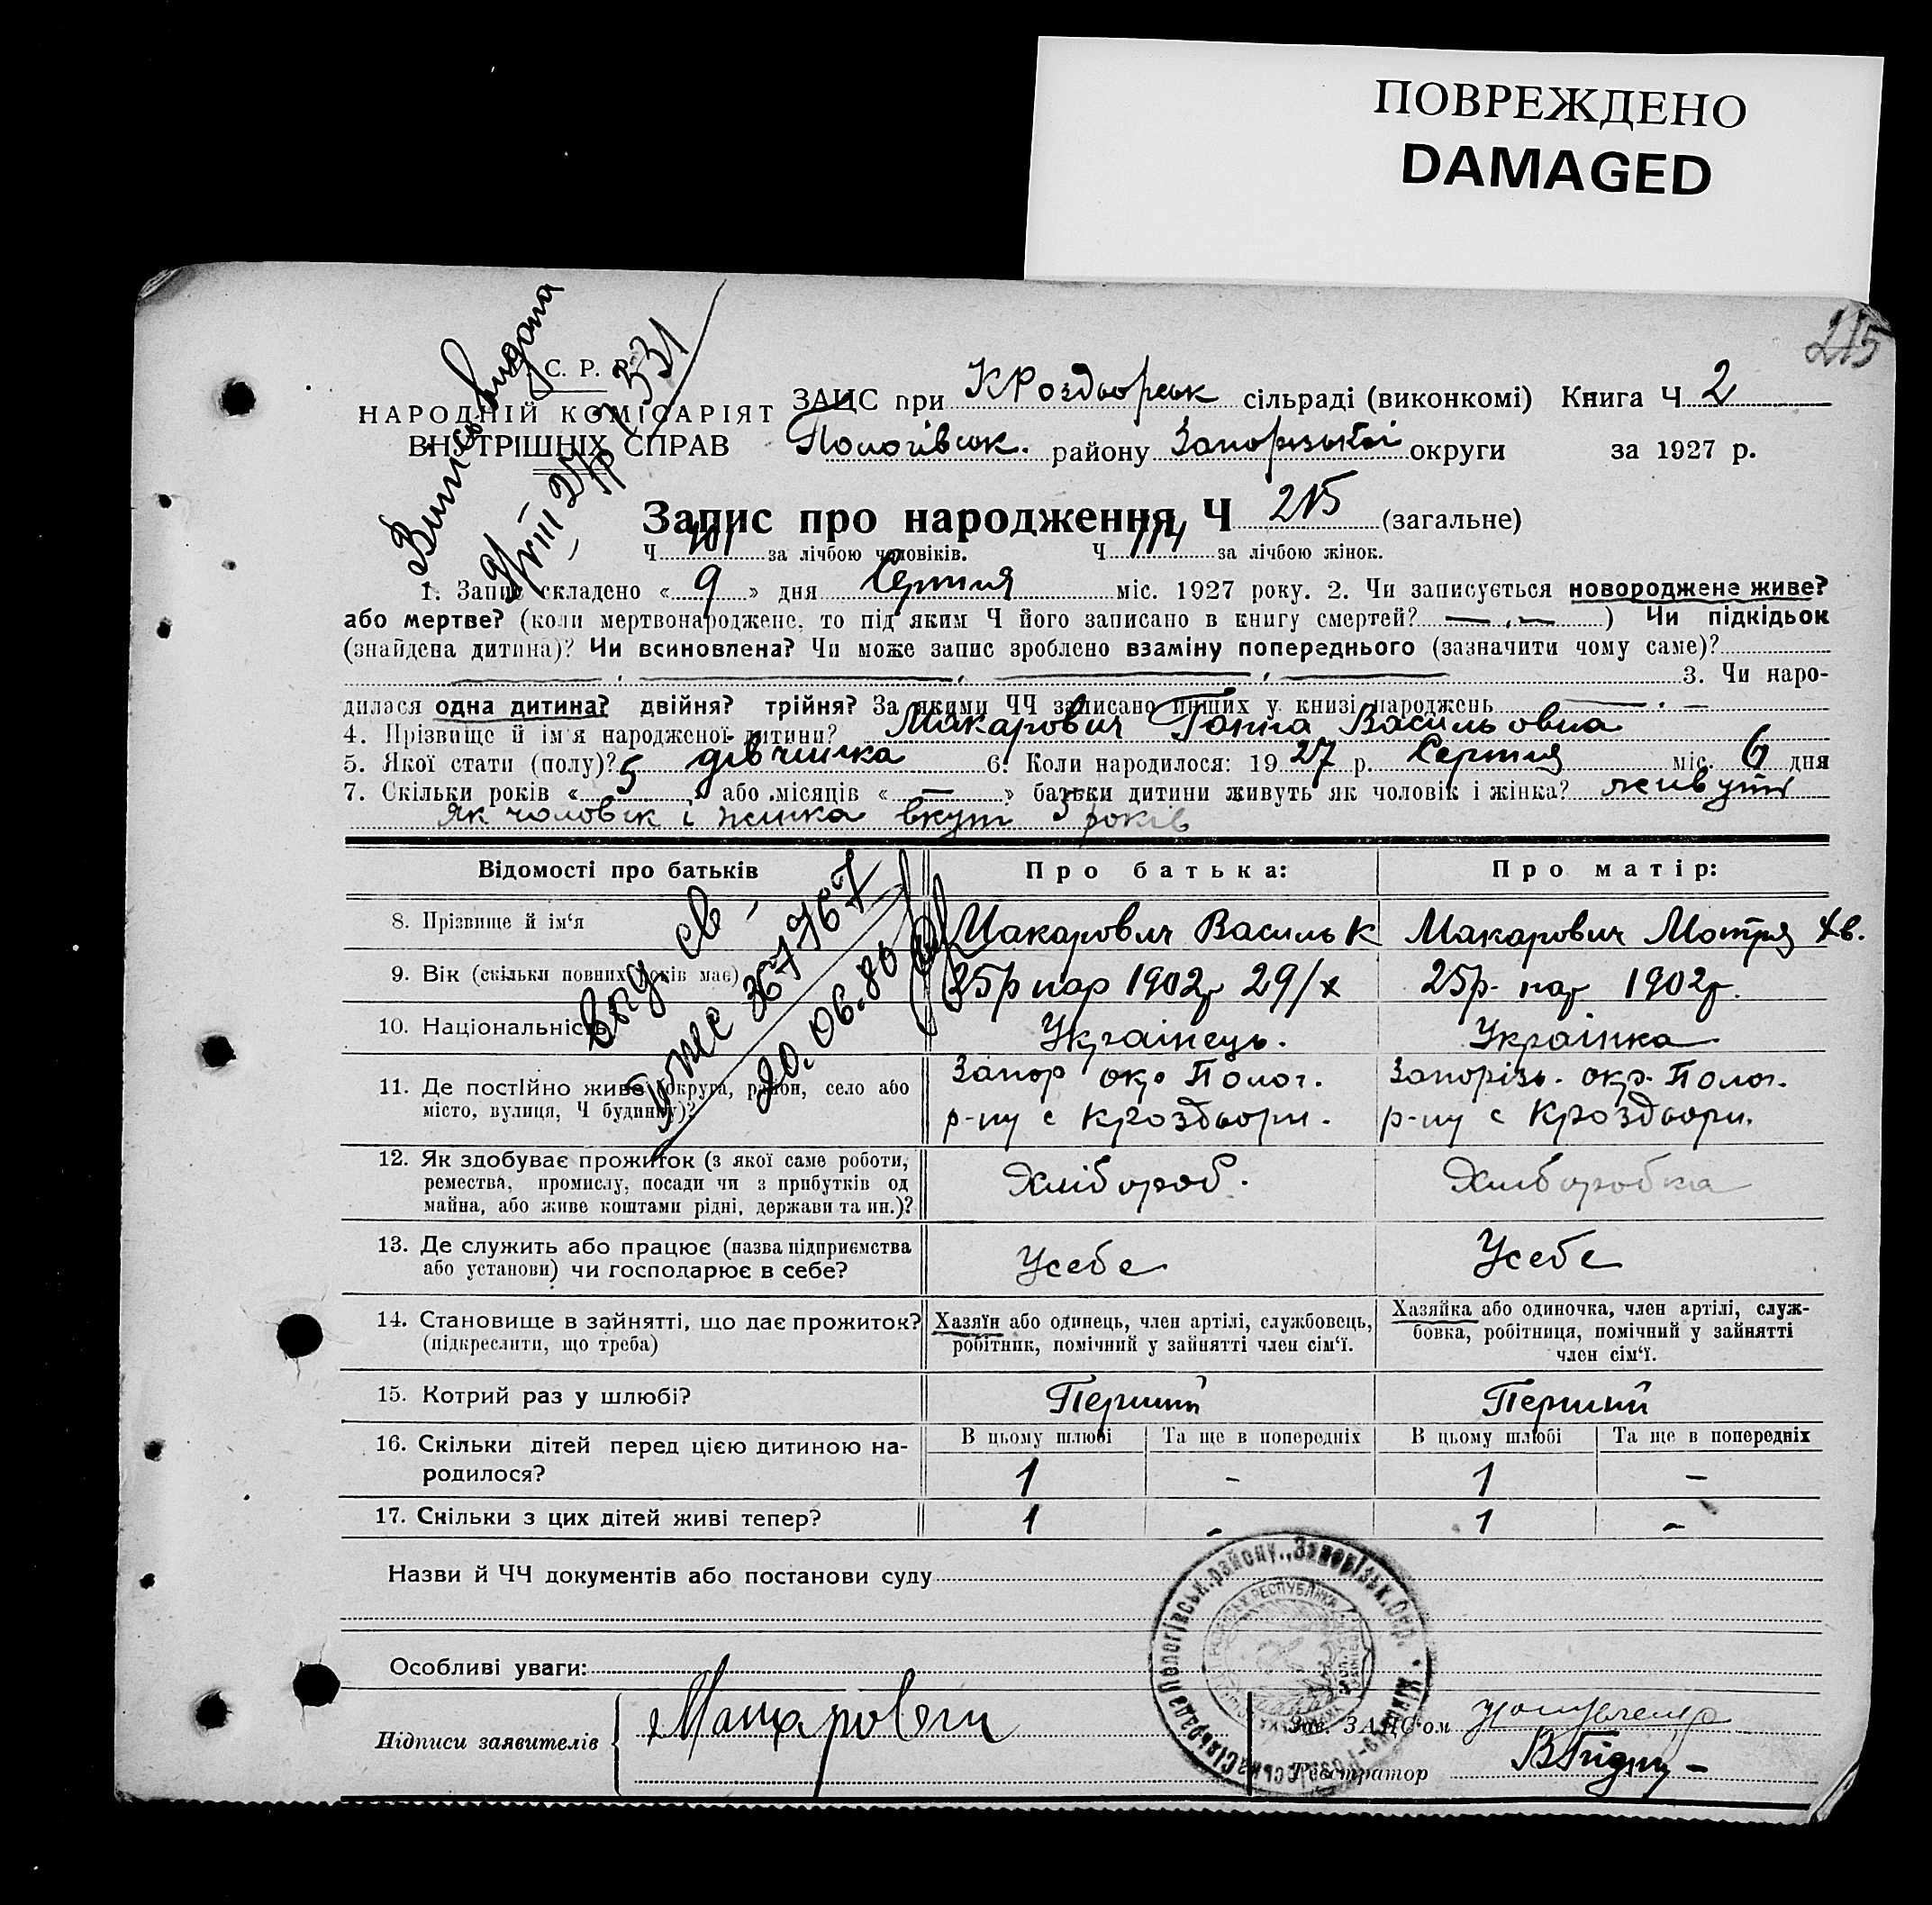 ПОВРЕЖДЕНО
DAMAGED
215
С. Р. Р.
НАРОДНІЙ КОМІСАРІЯТ
ВНУТРІШНІХ СПРАВ
Випись видана
ЗАЦС при КРоздворськ сільраді (виконкомі) Книга Ч 2
Пологівськ. району Запорізької округи за 1927 р.
Запис про народження Ч 215 (загальне)
Ч 101 за лічбою чоловіків. Ч 114 за лічбою жінок.
1. Запис складено « 9 » дня Серпня міс. 1927 року. 2. Чи записується новороджене живе?
або мертве? (коли мертвонароджене, то під яким Ч його записано в книгу смертей? — „ — ) Чи підкідьок
(знайдена дитина)? Чи всиновлена? Чи може запис зроблено взаміну попереднього (зазначити чому саме)?
3. Чи наро-
дилася одна дитина? двійня? трійня? За якими ЧЧ записано инших у книзі народжень — . —
4. Прізвище й ім'я народженої дитини? Макарович Ганна Васильовна
5. Якої стати (полу)? дівчинка 6. Коли народилося: 1927 р. Серпня міс. 6 дня
7. Скільки років « 5 » або місяців « — » батьки дитини живуть як чоловік і жінка? живуть
Як чоловік і жинка вкупі 5 років
Відомості про батьків Про батька: Про матір:
8. Прізвище й ім‘я Макарович Василь К Макарович Мотря
9. Вік (скільки повних років має) 25р нар 1902р 29/х 25р. нар 1902р.
10. Національність Українець. Українка
Выд. св
20.06.80
11. Де постійно живе (округа, район, село або
місто, вулиця, Ч будинку)?
Запор окр Полог.
р-ну с Кроздвори.
Запорізь. окр. Полог.
р-ну с Кроздвори.
12. Як здобуває прожиток (з якої саме роботи,
ремества, промислу, посади чи з прибутків од
майна, або живе коштами рідні, держави та ин.)?
Хлібороб. Хліборобка
13. Де служить або працює (назва підприємства
або установи) чи господарює в себе?
Усебе Усебе
14. Становище в зайнятті, що дає прожиток?
(підкреслити, що треба)
Хазяїн або одинець, член артілі, службовець,
робітник, помічний у зайнятті член сім‘ї.
Хазяйка або одиночка, член артілі, служ-
бовка, робітниця, помічний у зайнятті
член сім‘ї.
15. Котрий раз у шлюбі? Перший Перший
16. Скільки дітей перед цією дитиною на-
родилося?
В цьому шлюбі Та ще в попередніх В цьому шлюбі Та ще в попередніх
1 - 1 -
17. Скільки з цих дітей живі тепер? 1 - 1 -
Назви й ЧЧ документів або постанови суду
Особливі уваги:
Підписи заявителів Макарович
Зав. ЗАЦС‘ом
Реєстратор